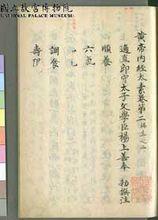 國立故宮博物院
NATIONAL PALACE MUSEUM
黃帝內經太素卷第二
通直郎守太子文學臣楊上善奉 勑撰注
順養
六氣
九氣
調食
壽限